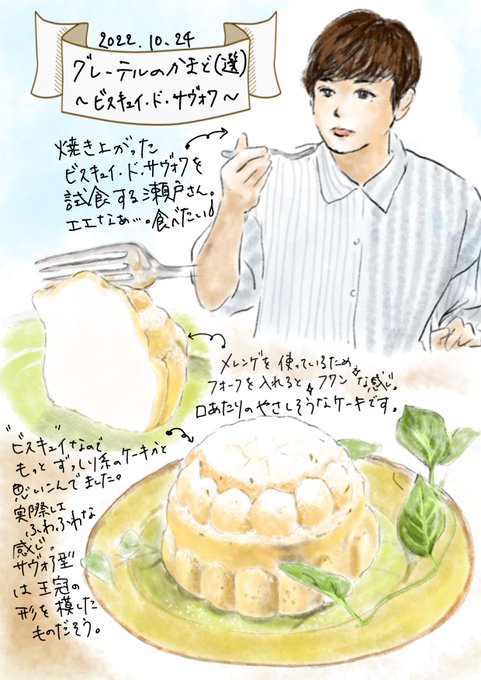 2022.10.24
グレーテルのかまど(選)
～ビスキュイ・ド・サヴォワ～
焼き上がった
ビスキュイ・ド・サヴォワを
試食する瀬戸さん。
エエなぁ…。食べたい!
メレンゲを使っているため
フォークを入れるとフワンな感じ。
口あたりのやさしそうなケーキです。
"ビスキュイ"なので
もっとずっしり系のケーキかと
思いこんでました。
実際は
ふわふわな
感じ。
サヴォア型
は王冠の
形を模した
ものだそう。